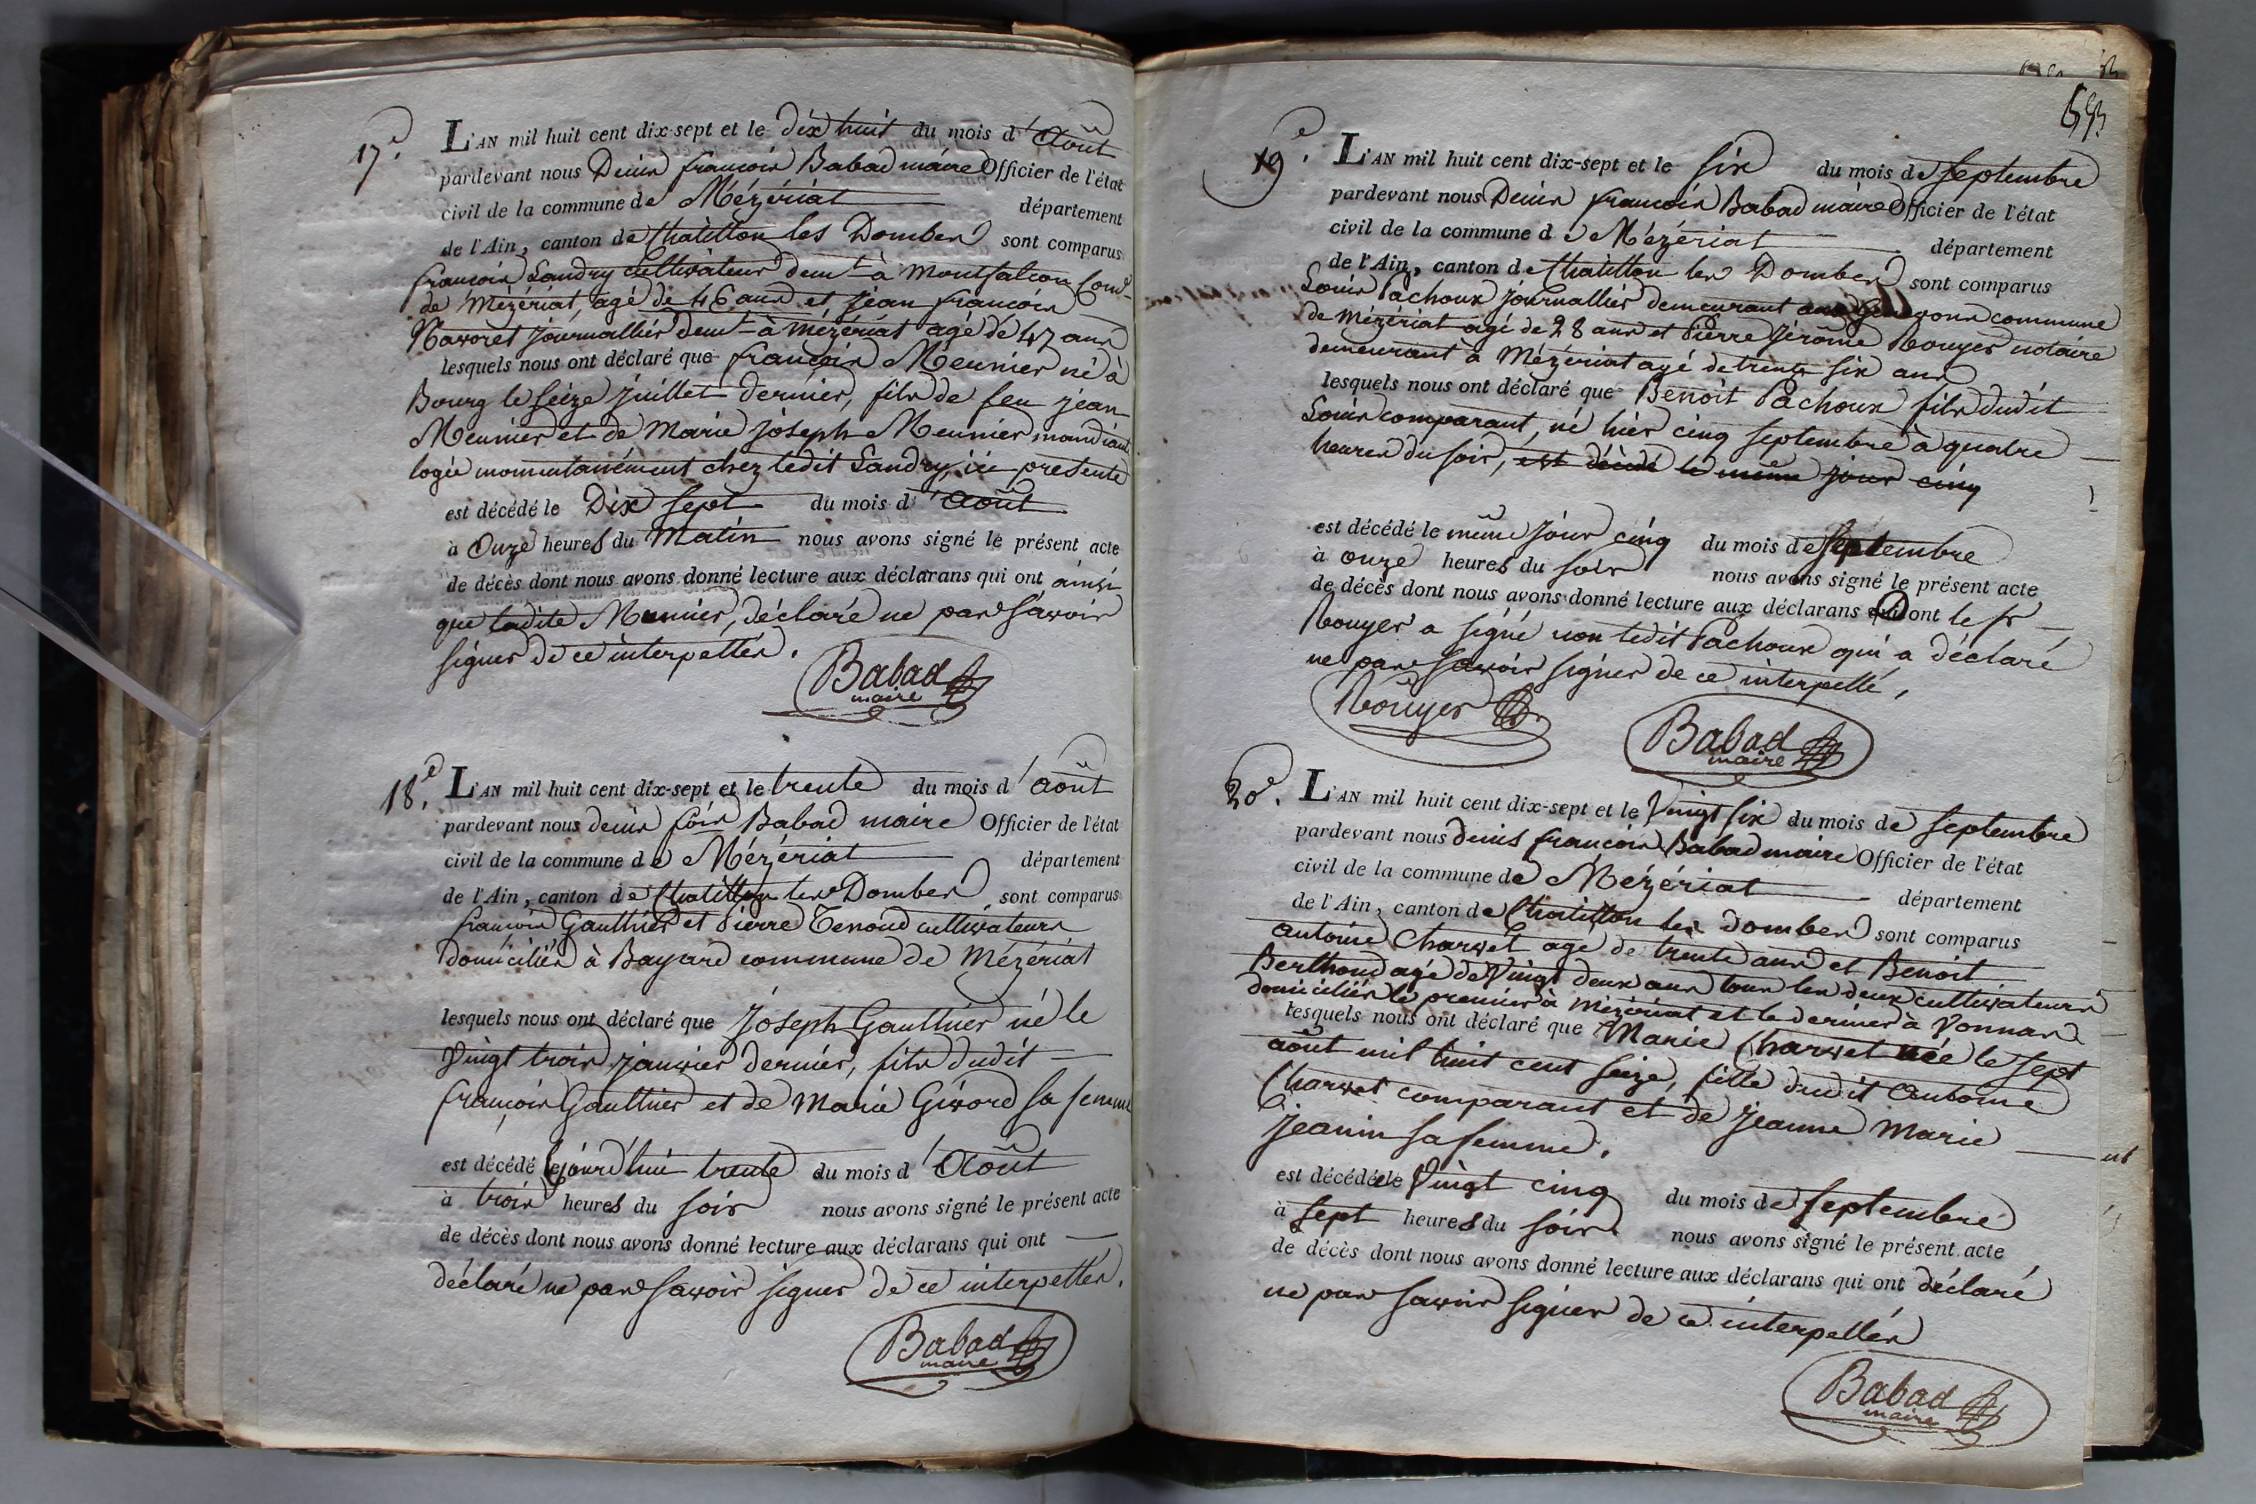 17e.
L'AN mil huit cent dix-sept et le dix huit du mois d'Août
pardevant nous Denis françois Babad maire Officier de l'état
civil de la commune de Mézériat département
de l'Ain, canton de Chatillon les Dombes sont comparus
françois Landry cultivateur demt à Montfalcon Comne
de Mézériat, agé de 46 ans et jean françois
Navoret journallier demt à mézériat agé de 47 ans
lesquels nous ont déclaré que françois Meunier né à
Bourg le seize juillet dernier, fils de feu jean
Meunier et de Marie joseph Meunier, mandiante
logée momentanément chez ledit Landry, ici presente
est décédé le Dix sept du mois d'Août
à Onze heures du Matin nous avons signé le présent acte
de décès dont nous avons donné lecture aux déclarans qui ont ainsi
que ladite Meunier, déclaré ne pas savoir
signer de ce interpellés.
Babad
maire
18e.
L'AN mil huit cent dix-sept et le trente du mois d'août
pardevant nous denis fçois Babad maire Officier de l'état
civil de la commune de Mézériat département
de l'Ain, canton de Chatillon les Dombes sont comparus
françois Gauthier et Pierre Tenoud cultivateurs
domiciliés à Bayard commune de Mézériat
lesquels nous ont déclaré que Joseph Gauthier né le
Vingt trois janvier dernier, fils dudit
françois Gauthier et de Marie Givord sa femme
est décédé cejourd'hui trente du mois d'Août
à trois heures du soir nous avons signé le présent acte
de décès dont nous avons donné lecture aux déclarans qui ont
déclaré ne pas savoir signer de ce interpellés.
Babad
maire
19e.
L'AN mil huit cent dix-sept et le six du mois de septembre
pardevant nous Denis françois Babad maire Officier de l'état
civil de la commune de Mézériat département
de l'Ain, canton de Chatillon les Dombes sont comparus
Louis Pachoux journallier demeurant commune
de Mézériat agé de 28 ans et Pierre Jérome Rouyer notaire
demeurant à Mézériat agé de trente six ans
lesquels nous ont déclaré que Benoit Pachoux fils dudit
Louis comparant, né hier cinq septembre à quatre
heures du soir, est décédé le même jour cinq
est décédé le même jour cinq du mois de septembre
à onze heures du soir nous avons signé le présent acte
de décès dont nous avons donné lecture aux déclarans qui ont le sr
Rouyer a signé non ledit Pachoux qui a déclaré
ne pas savoir signer de ce interpellé.
Rouyer
Babad
maire
20e.
L'AN mil huit cent dix-sept et le Vingt six du mois de septembre
pardevant nous denis françois Babad maire Officier de l'état
civil de la commune de Mézériat département
de l'Ain, canton de Chatillon les Dombes sont comparus
antoine Charvet agé de trente ans et Benoit
Berthoud agé de Vingt deux ans tous les deux cultivateurs
domiciliés le premier à Mézériat et le dernier à Vonnas
lesquels nous ont déclaré que Marie Charvet née le sept
août mil huit cent seize, fille dudit Antoine
Charvet comparant et de jeanne Marie
jeanin sa femme.
est décédée le Vingt cinq du mois de septembre
à sept heures du soir. nous avons signé le présent acte
de décès dont nous avons donné lecture aux déclarans qui ont déclaré
ne pas savoir signer de ce interpellés
Babad
maire